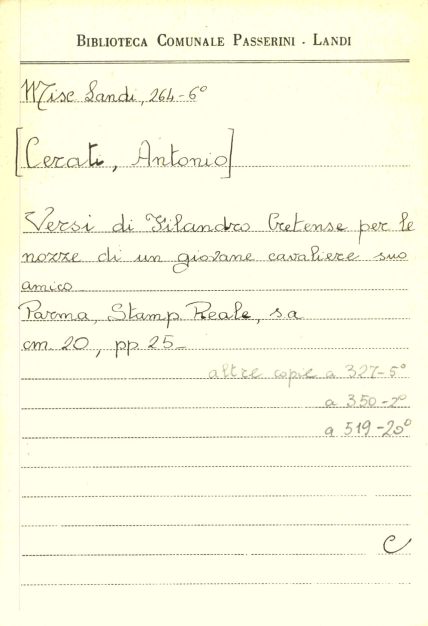 BIBLIOTECA COMUNALE PASSERINI - LANDI
Misc Landi, 264-6°
[Cerati, Antonio]
Versi di Filandro Cretense per le
nozze di un giovane cavaliere suo
amico.
Parma, Stamp Reale, sa
cm. 20, pp 25_
altre copie a 327-5°
a 350-2°
a 519-20°
C